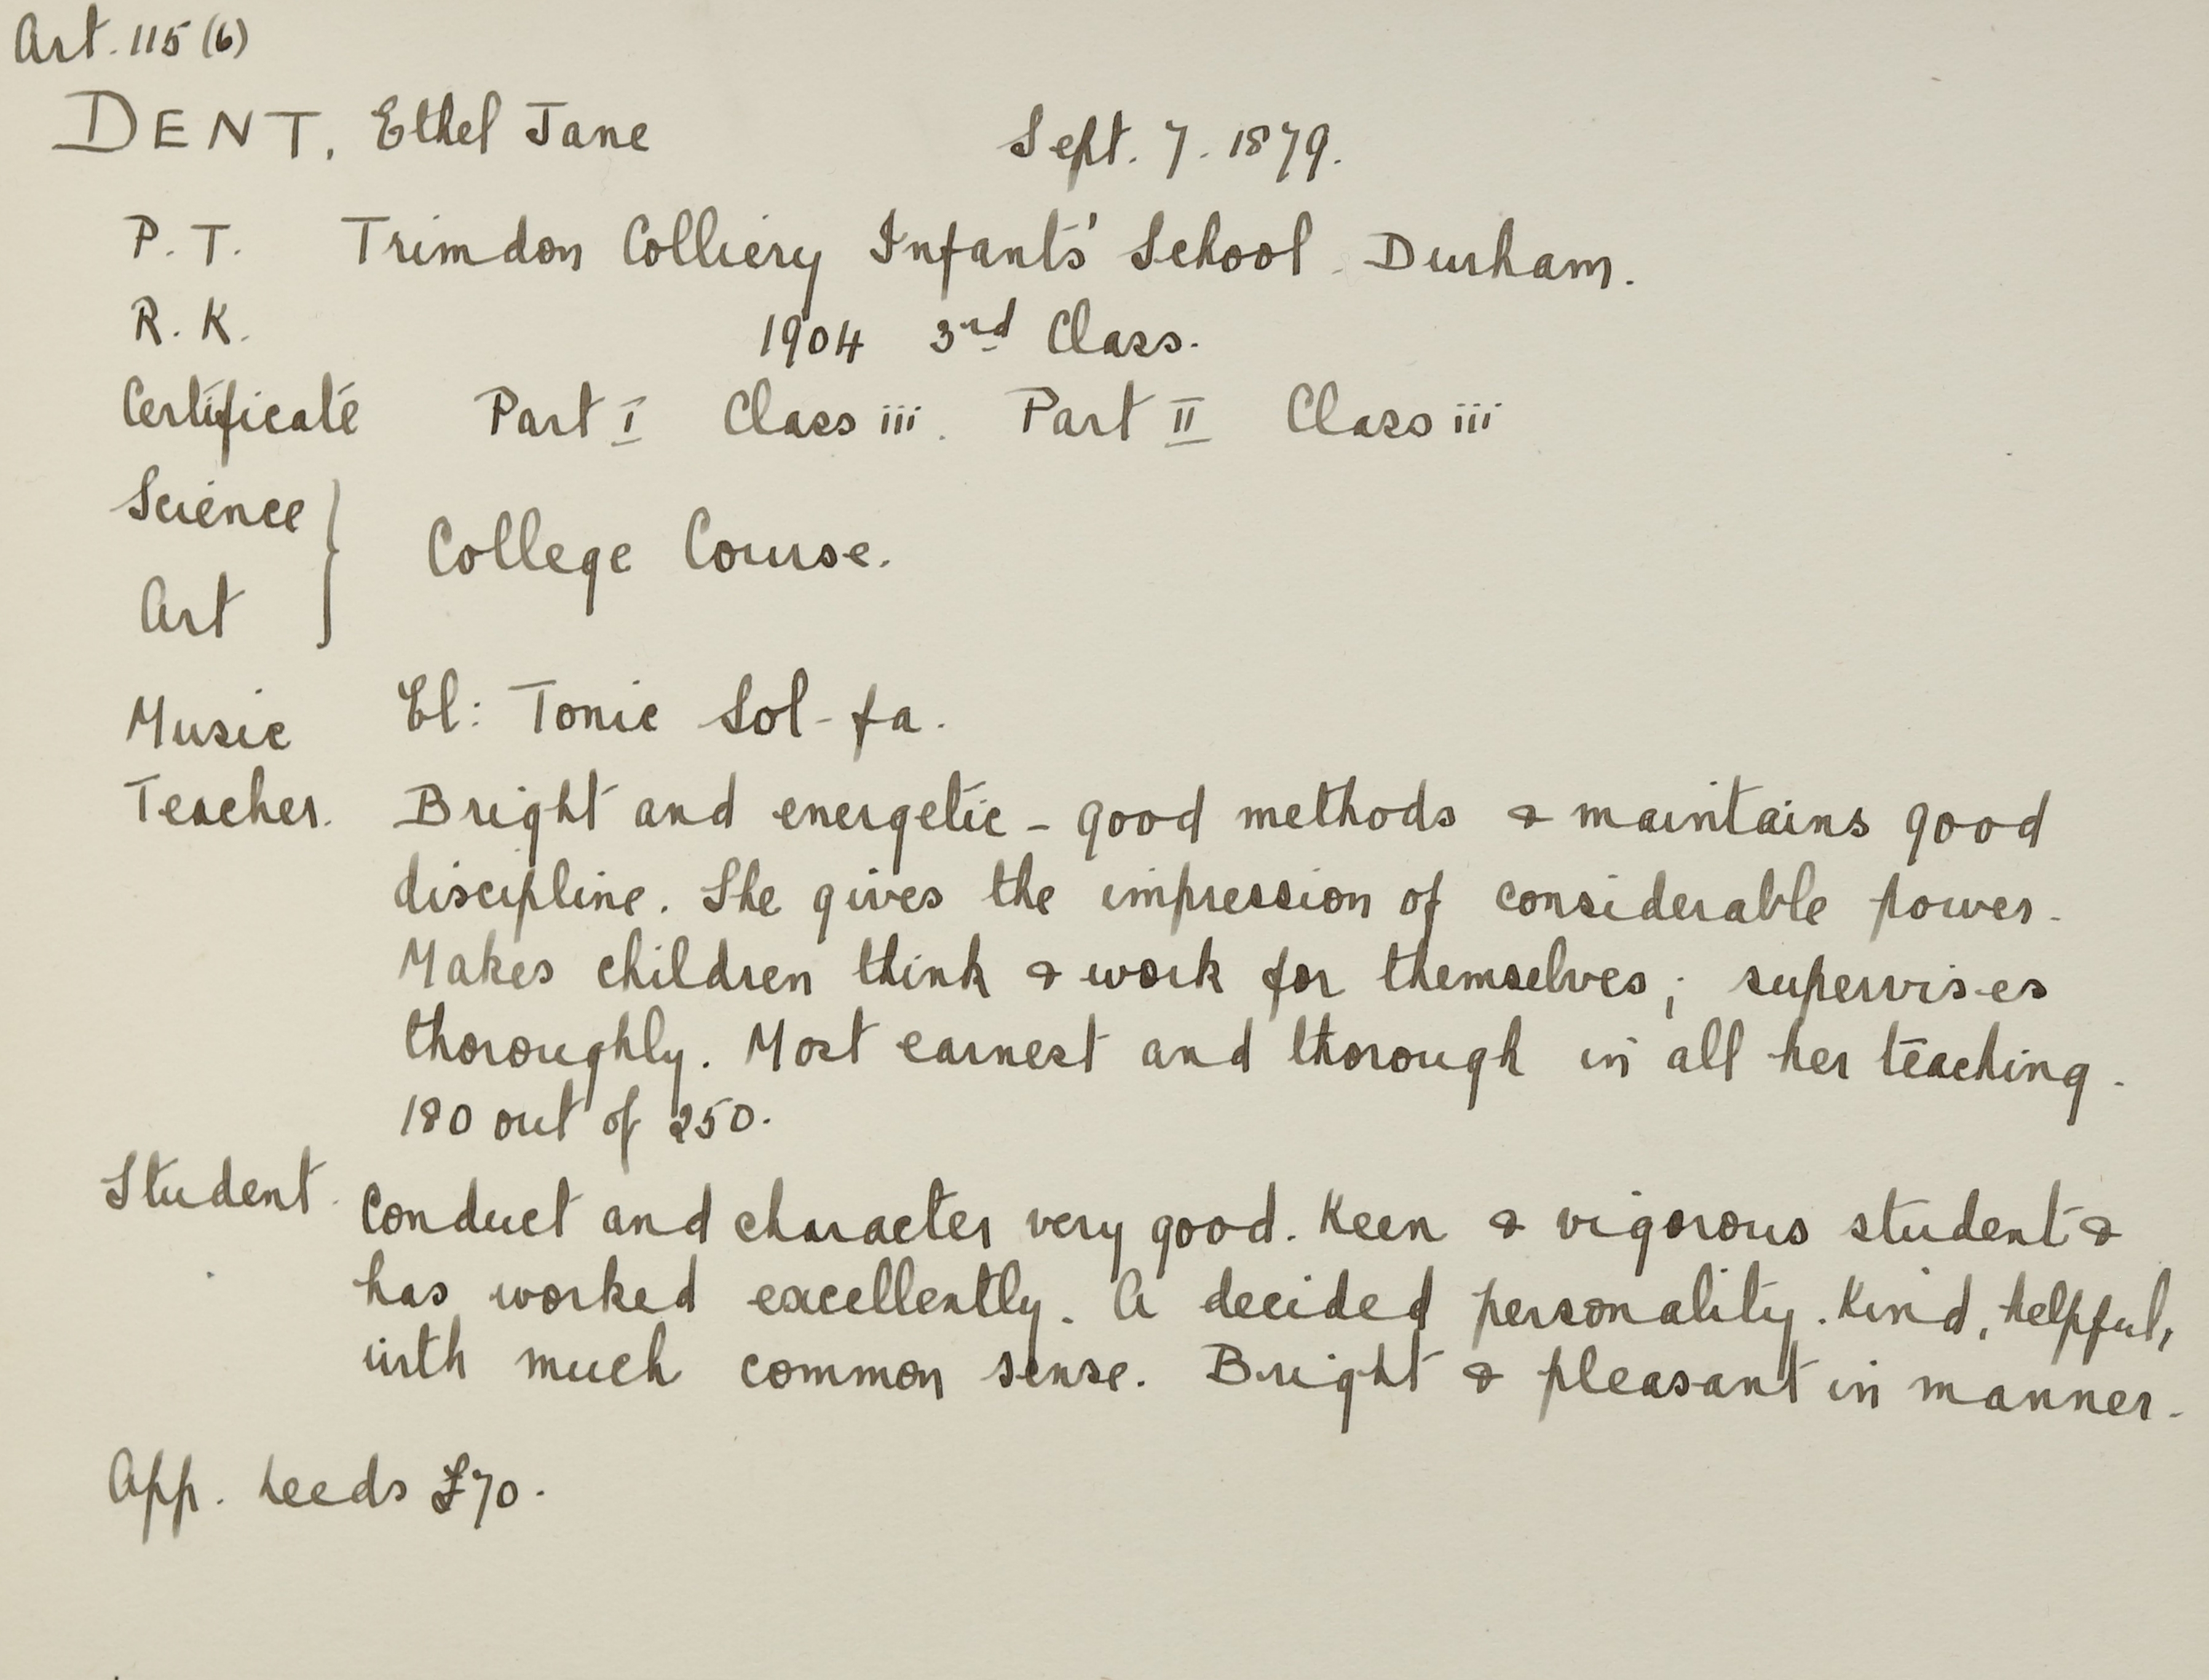 Art. 115 (6)
DENT, Ethel Jane Sept. 7. 1879.
P. T. Trimdon Colliery Infants' School. Durham.
R. K. 1904 3rd Class.
Certificate Part I Class iii. Part II Class iii
Science
College Course.
Art
Music El: Tonic Sol-fa.
Teacher. Bright and energetic - good methods & maintains good
discipline. She gives the impression of considerable power.
Makes children think & work for themselves; supervises
thoroughly. Most earnest and thorough in all her teaching.
180 out of 250.
Student. Conduct and character very good. Keen & vigorous student &
has worked excellently. A decided personality. Kind, helpful,
with much common sense. Bright & pleasant in manner.
App. Leeds £70.